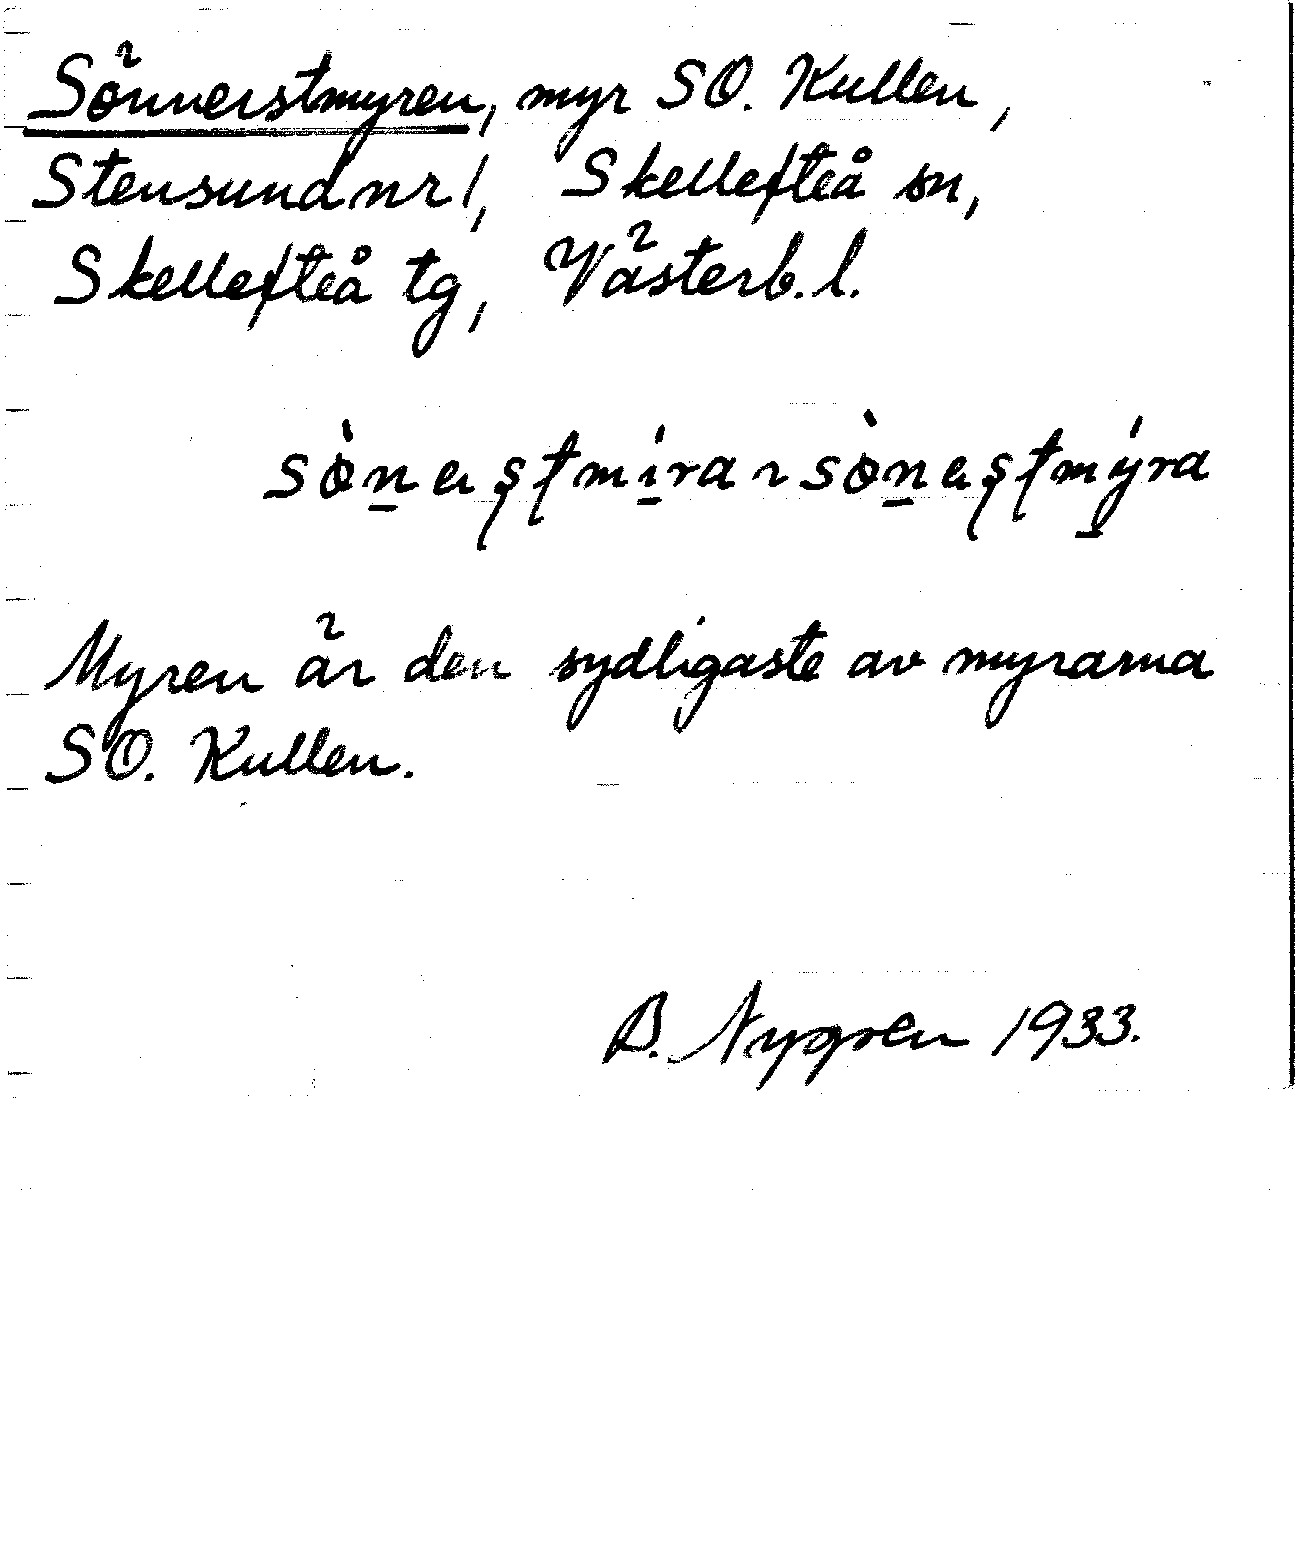 Sönnerstmyren, myr SO. Kullen,
Stensund nr 1, Skellefteå sn,
Skellefteå tg, Västerb. l.
Myren är den sydligaste av myrarna
SO. Kullen.
B. Nygren 1933.